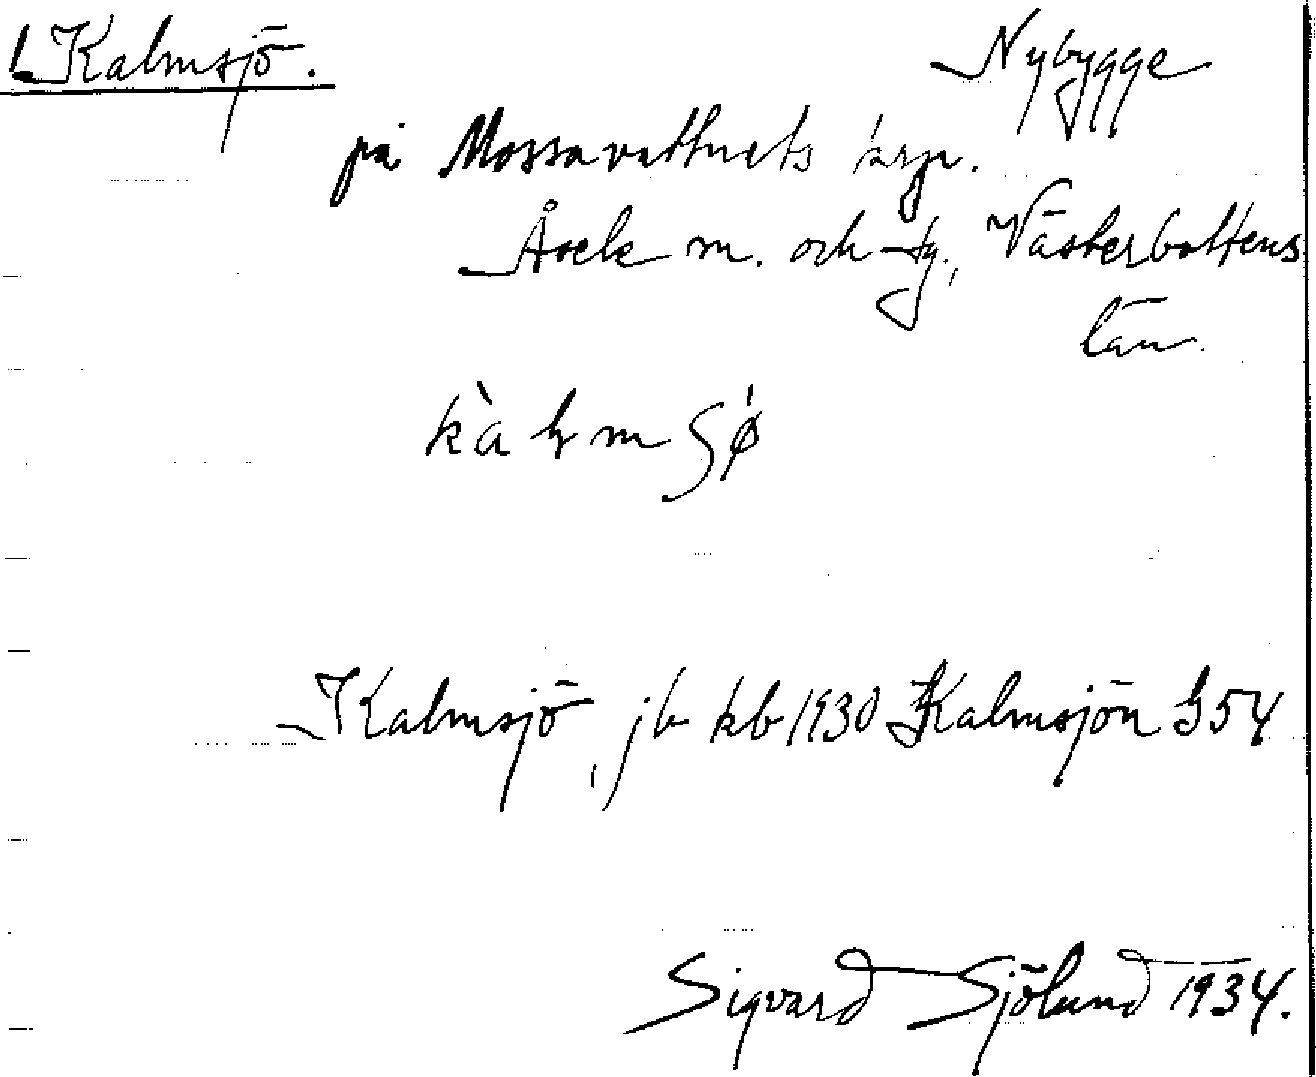 1. Kalmsjö.
Nybygge
på Mossavattnets
Åsele m. och tg., Västerbottens
län.
Kalmsjö, jb kb 1930 Kalmsjön G54
Sigvard Sjölund 1934.